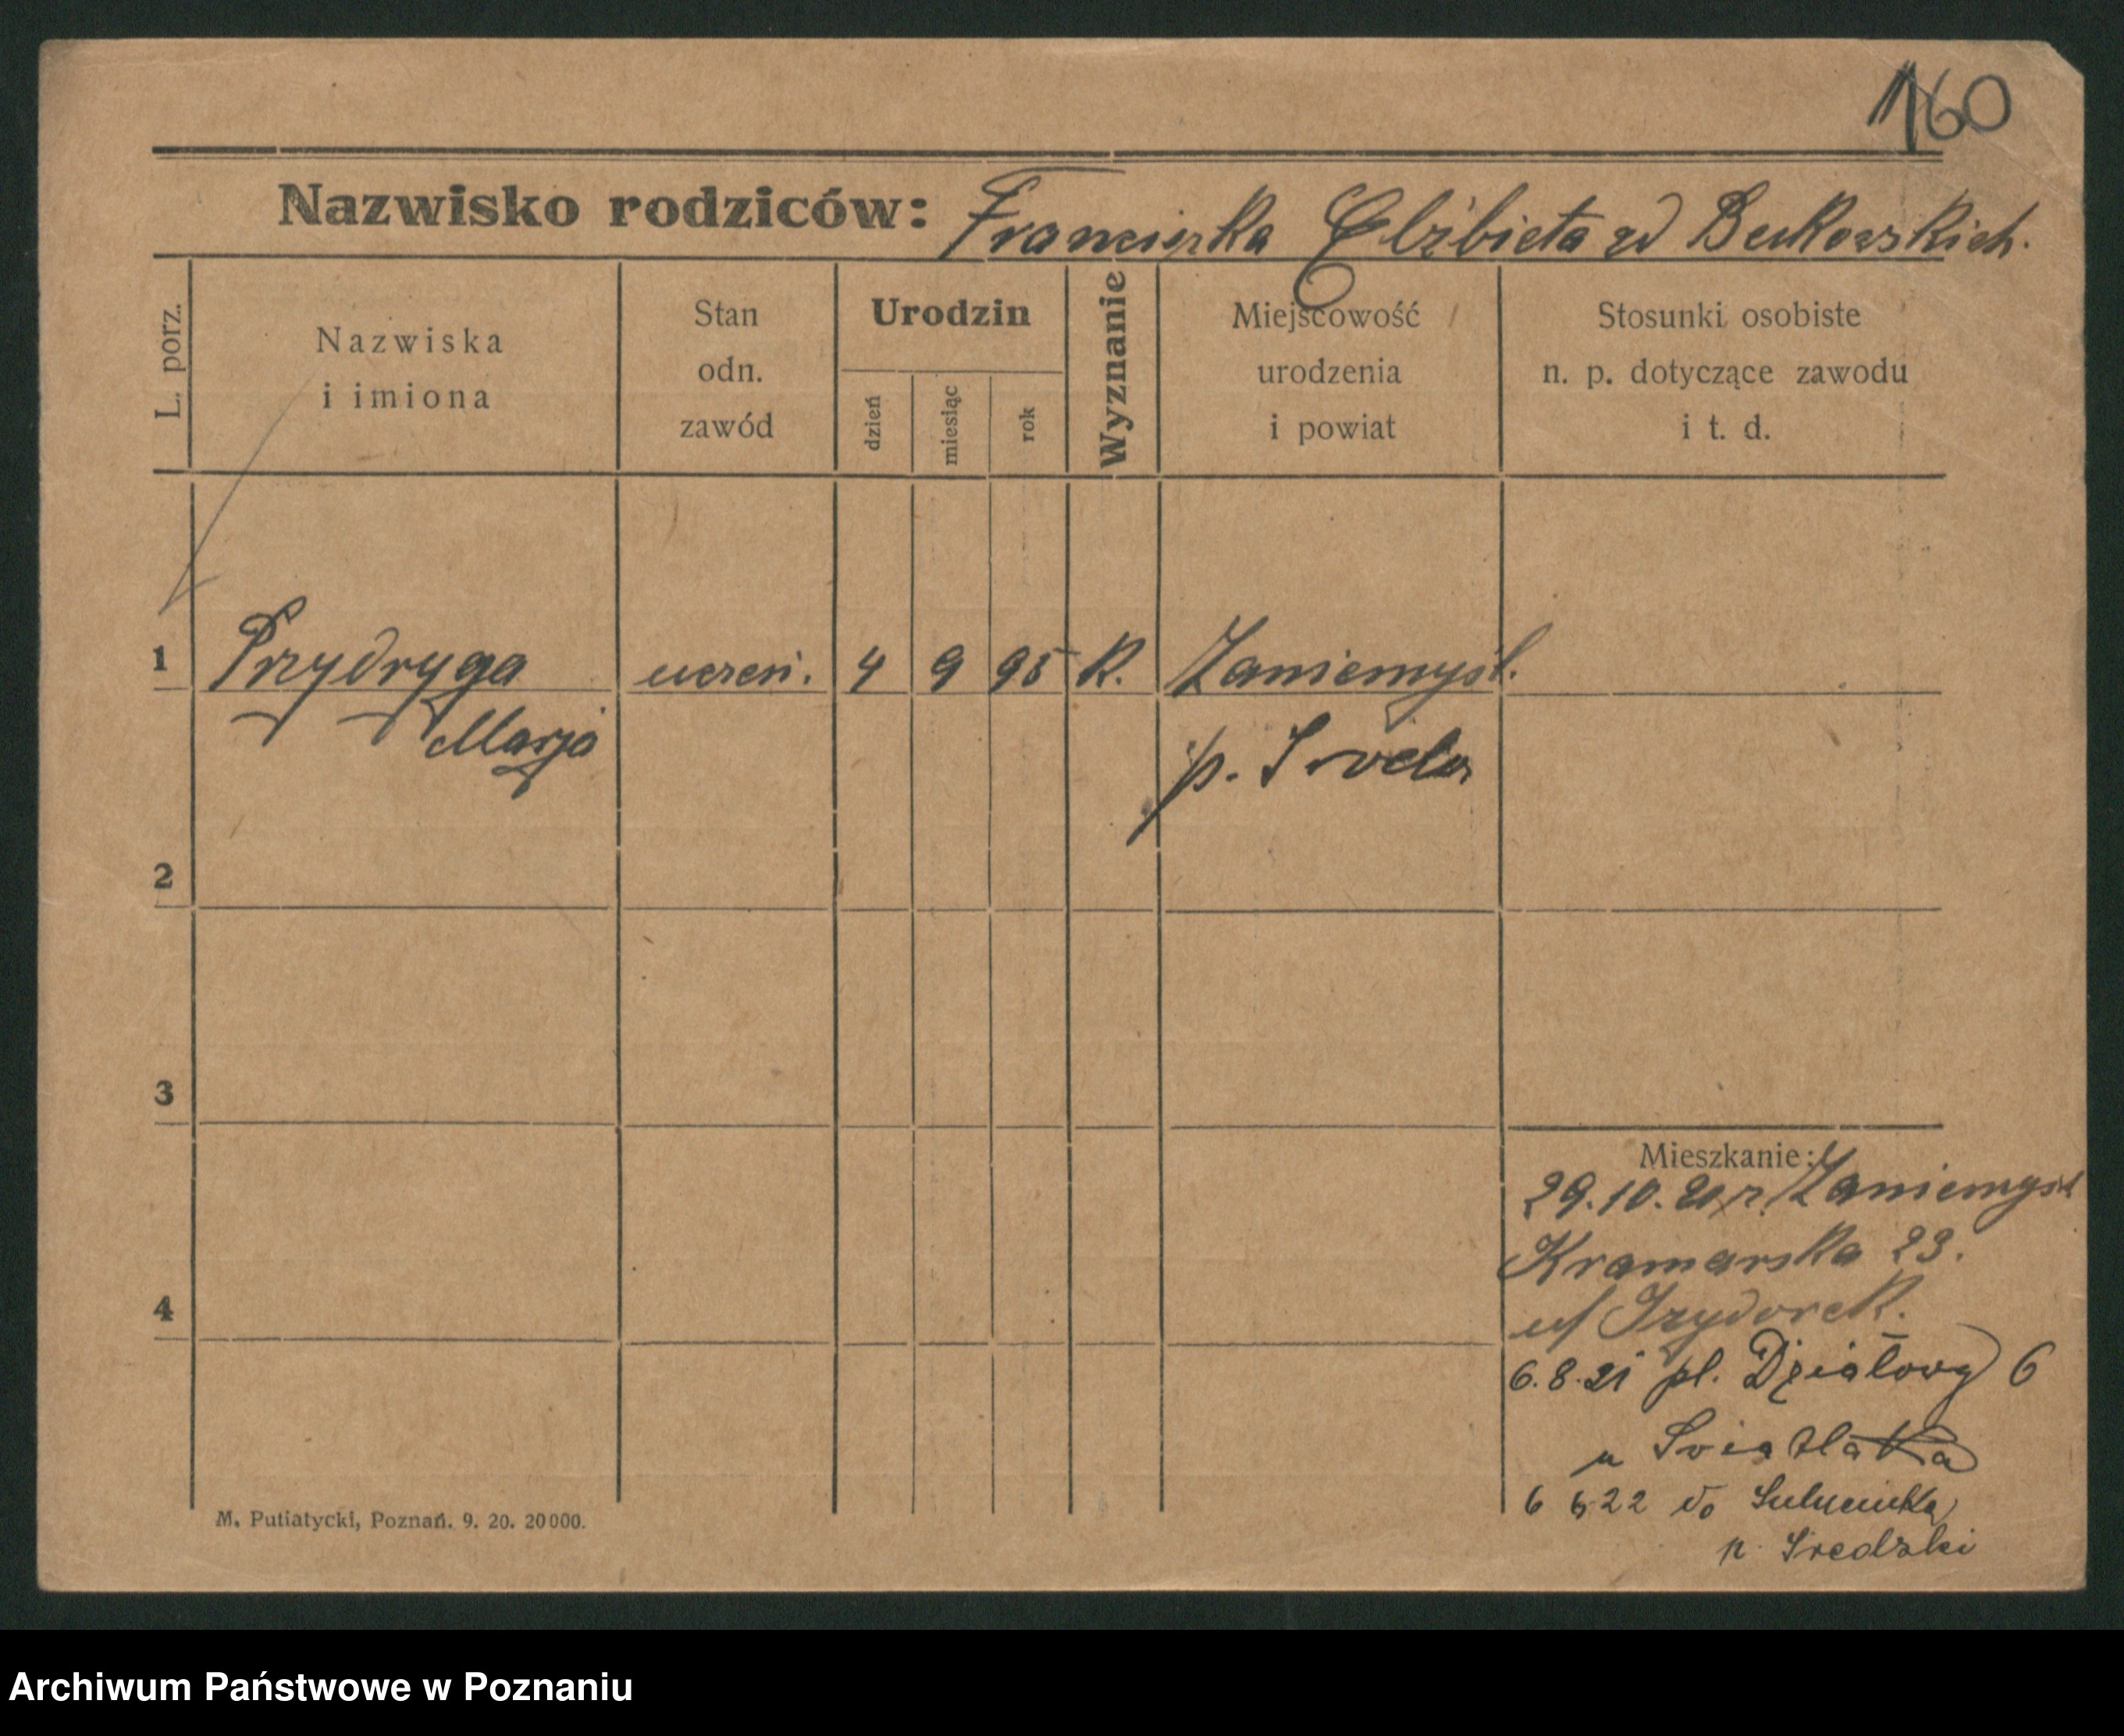 160
Nazwisko rodziców: Franciszka Elżbieta zd Bukowskich.
L. porz.
Nazwiska
i imiona
Stan
odn.
zawód
Urodzin
dzień
miesiąc
rok
Wyznanie
Miejscowość
urodzenia
i powiat
Stosunki osobiste
n. p. dotyczące zawodu
i t. d.
1 Przydryga uczeń. 4 9 95 K. Zaniemyśl.
Marja p. Środa
2
3
4
Mieszkanie:
29.10. r. Zaniemyśl
Kramarska 23.
u/ Izydorek.
6.8.21 pl. Działowy 6
u
6 6 22 do
p. Średzki
M. Putiatycki, Poznań. 9. 20. 20000.
Archiwum Państwowe w Poznaniu